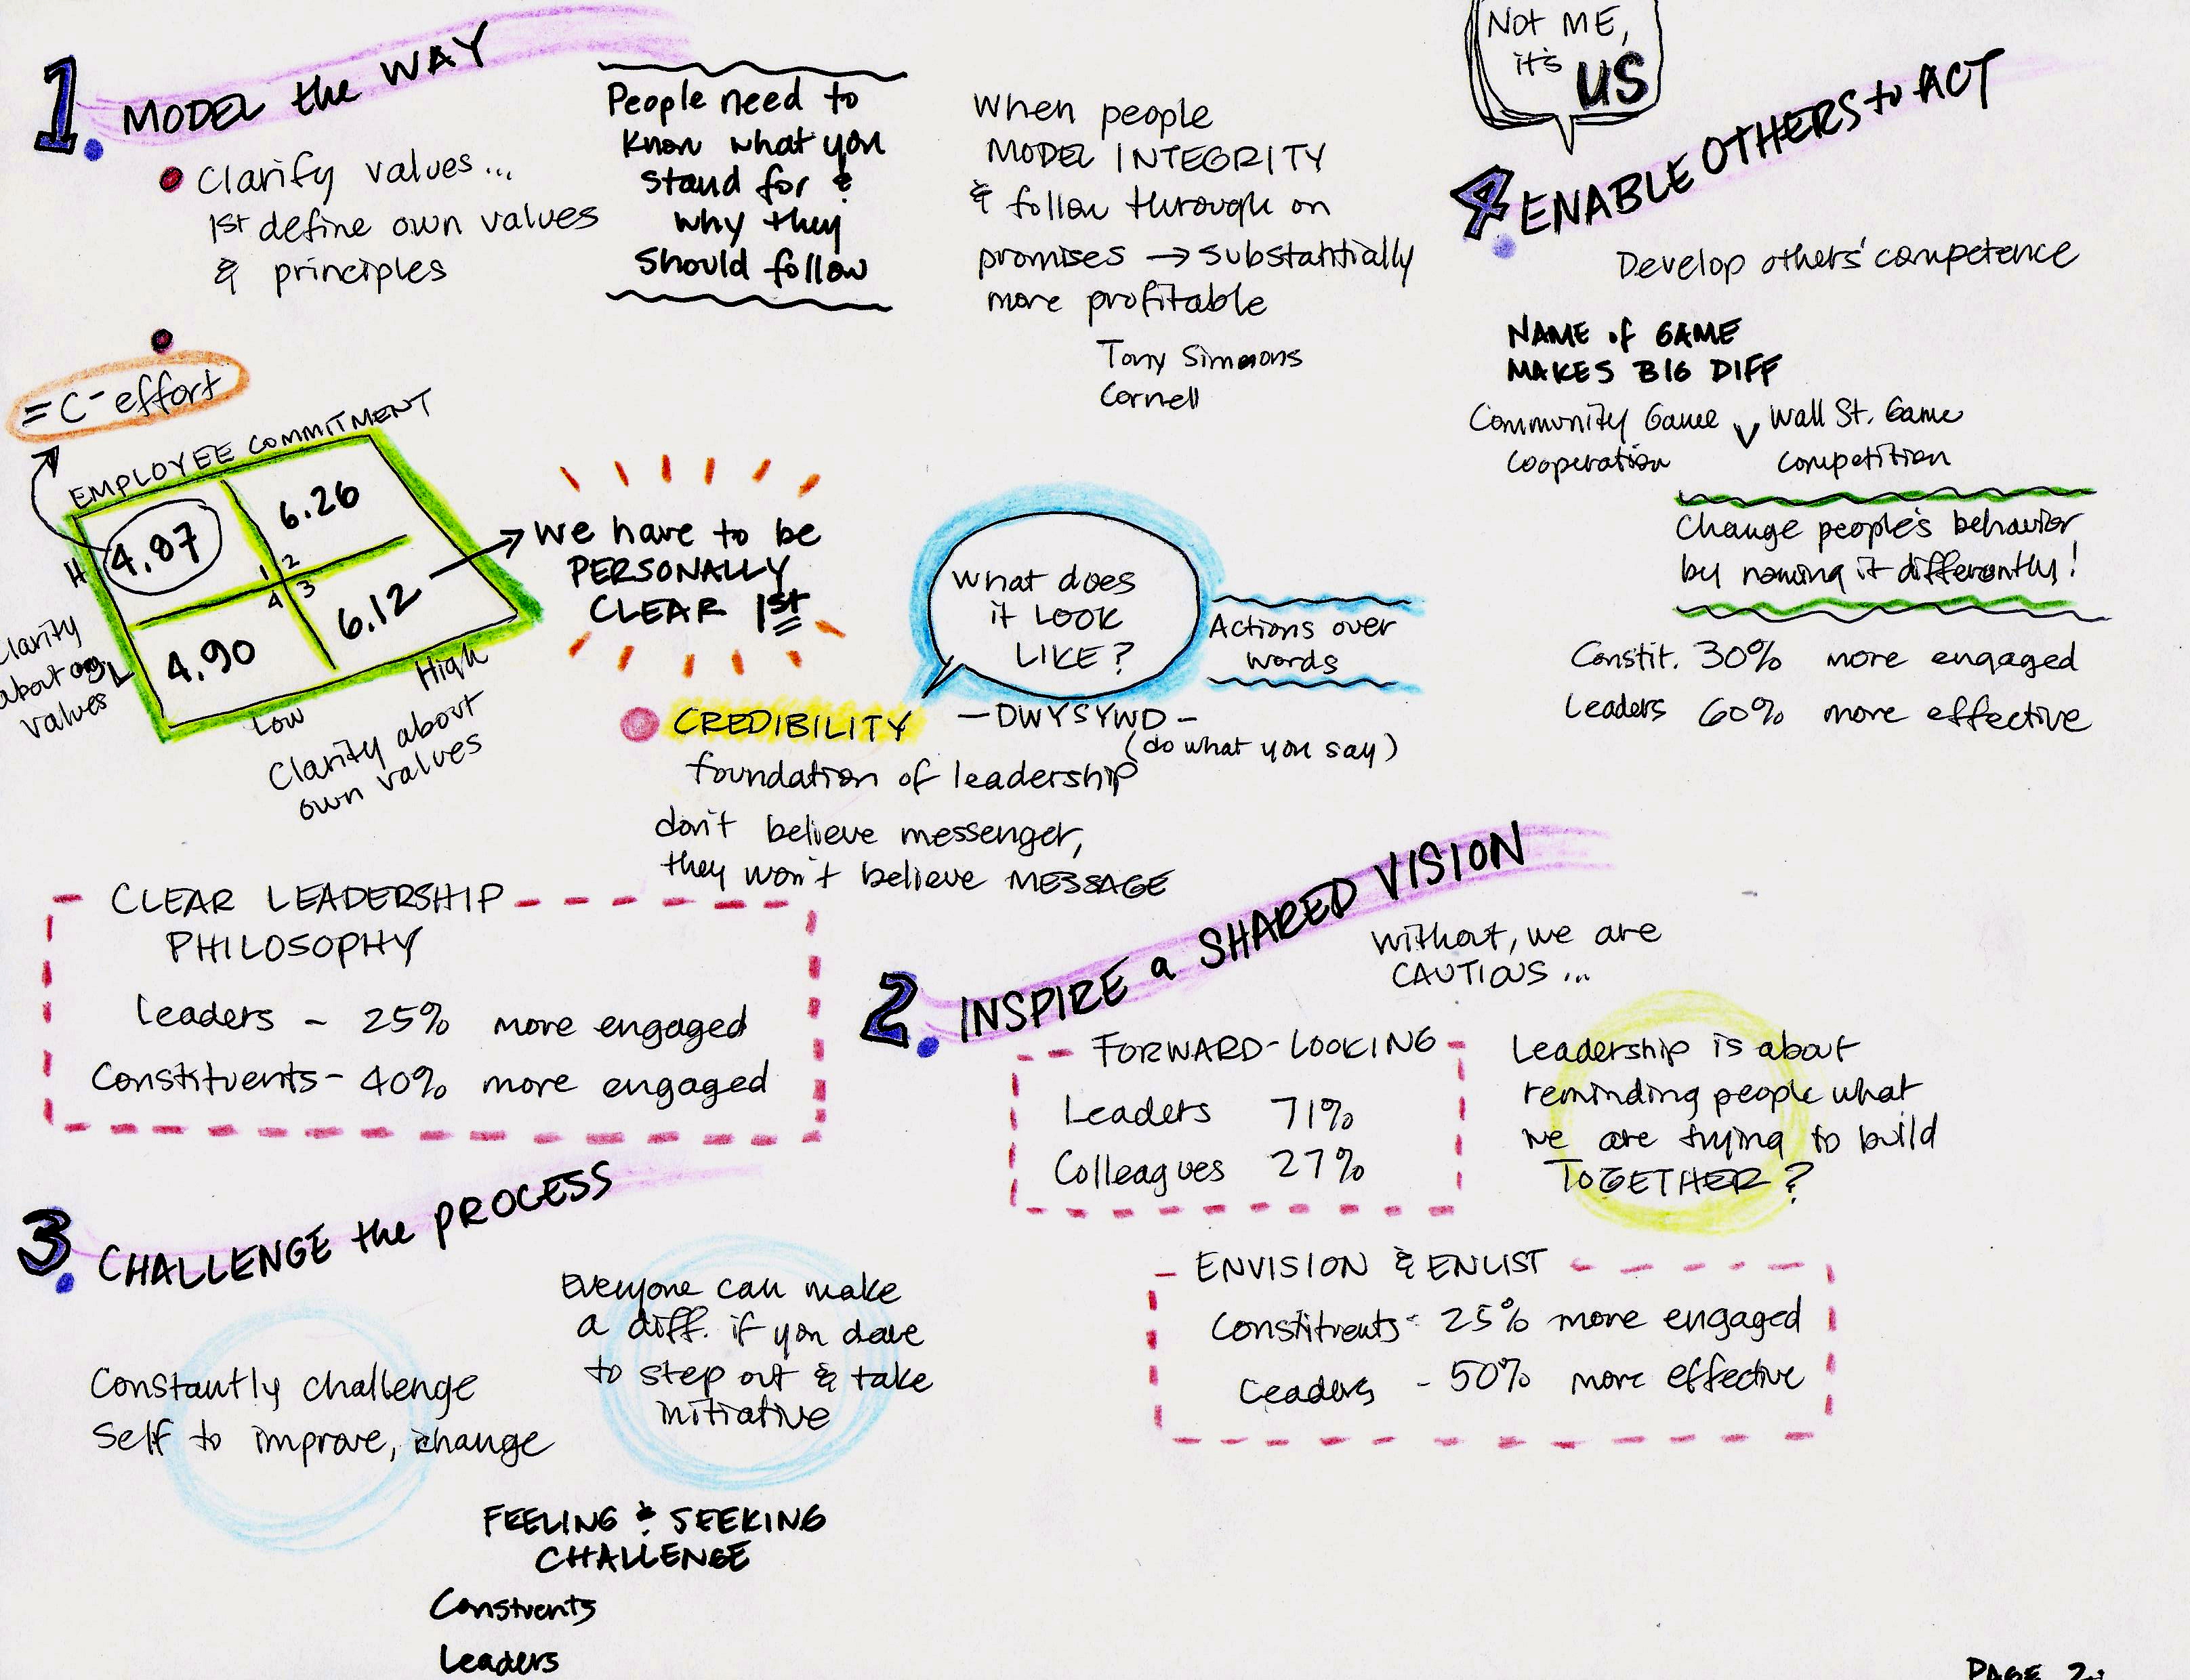 1. MODEL the WAY
Clarify values...
1st define own values
& principles
People need to
know what you
stand for &
why they
should follow
When people
MODEL INTEGRITY
& follow through on
promises → substantially
more profitable
Tony Simmons
Cornell
= C- effort
EMPLOYEE COMMITMENT
4.87
6.26
1 2
4 3
4.90
6.12
H
L
Clarity
about org
values
Low
High
Clarity about
own values
We have to be
PERSONALLY
CLEAR 1st
What does
it LOOK
LIKE?
Actions over
words
CREDIBILITY - DWYSYWD -
(do what you say)
foundation of leadership
don't believe messenger,
they won't believe MESSAGE
CLEAR LEADERSHIP
PHILOSOPHY
Leaders - 25% more engaged
Constituents - 40% more engaged
2. INSPIRE a SHARED VISION
Without, we are
CAUTIOUS...
FORWARD-LOOKING
Leaders 71%
Colleagues 27%
Leadership is about
reminding people what
we are trying to build
TOGETHER?
ENVISION & ENLIST
Constituents - 25% more engaged
Leaders - 50% more effective
3. CHALLENGE the PROCESS
Constantly challenge
self to improve, change
Everyone can make
a diff. if you dare
to step out & take
initiative
FEELING & SEEKING
CHALLENGE
Constuents
Leaders
Not ME,
it's US
4. ENABLE OTHERS to ACT
Develop others' competence
NAME of GAME
MAKES BIG DIFF
Community Game v Wall St. Game
Cooperation Competition
Change people's behavior
by naming it differently!
Constit. 30% more engaged
Leaders 60% more effective
PAGE 2